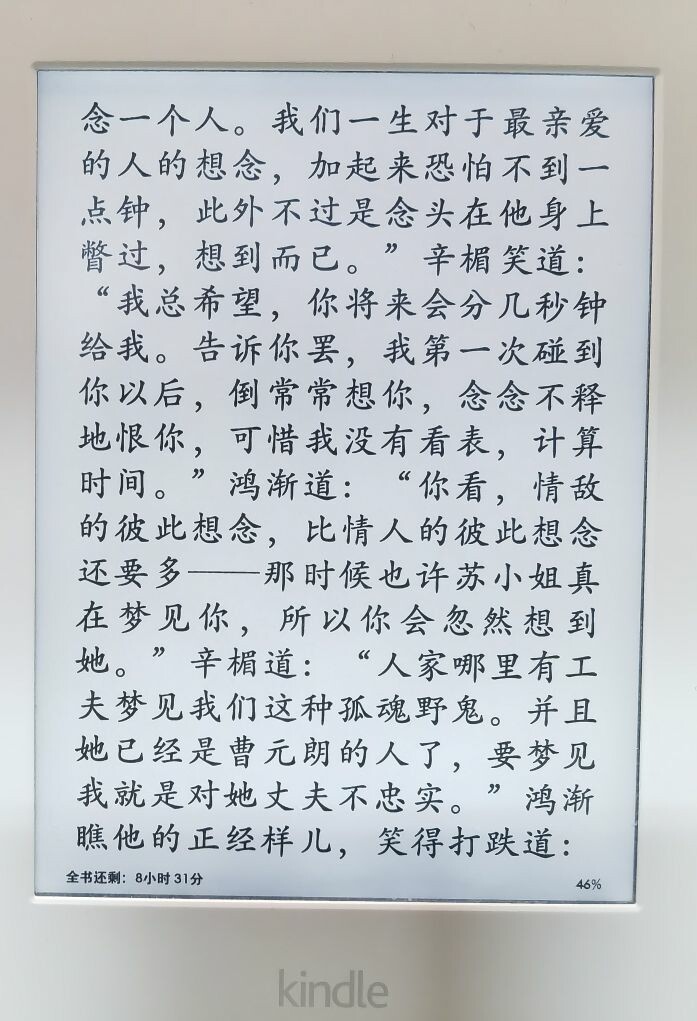 念一个人。我们一生对于最亲爱
的人的想念，加起来恐怕不到一
点钟，此外不过是念头在他身上
瞥过，想到而已。”辛楣笑道：
“我总希望，你将来会分几秒钟
给我。告诉你罢，我第一次碰到
你以后，倒常常想你，念念不释
地恨你，可惜我没有看表，计算
时间。”鸿渐道：“你看，情敌
的彼此想念，比情人的彼此想念
还要多——那时候也许苏小姐真
在梦见你，所以你会忽然想到
她。”辛楣道：“人家哪里有工
夫梦见我们这种孤魂野鬼。并且
她已经是曹元朗的人了，要梦见
我就是对她丈夫不忠实。”鸿渐
瞧他的正经样儿，笑得打跌道：
全书还剩：8小时31分 46%
kindle